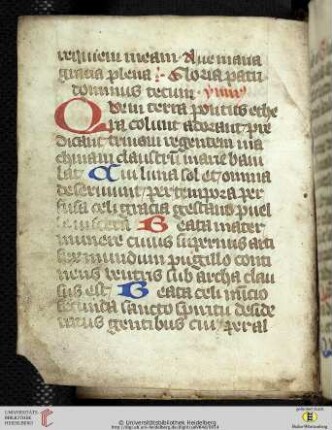 requiem meam Aue maria
gracia plena Gloria patri
dominus tecum ymn
Quem terra pontus ethe
ra colunt adorant pre
dicant trinam regentem ma
chinam claustrum marie baiu
lat Cui luna sol et omnia
deseruiunt per tempora per
fusa celi gracia gestant puel
le viscera Beata mater
munere cuius supernus arti
fex mundum pugillo conti
nens ventris sub archa clau
sus est Beata celi nuncio
fecunda sancto spiritu deside
ratus gentibus cui per al
UNIVERSITÄTS-
BIBLIOTHEK
HEIDELBERG
© Universitätsbibliothek Heidelberg
Baden-Württemberg